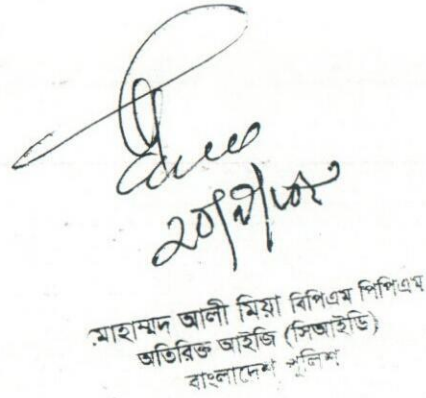 মোহাম্মদ আলী মিয়া বিপিএম পিপিএম
অতিরিক্ত আইজি (সিআইডি)
বাংলাদেশ পুলিশ